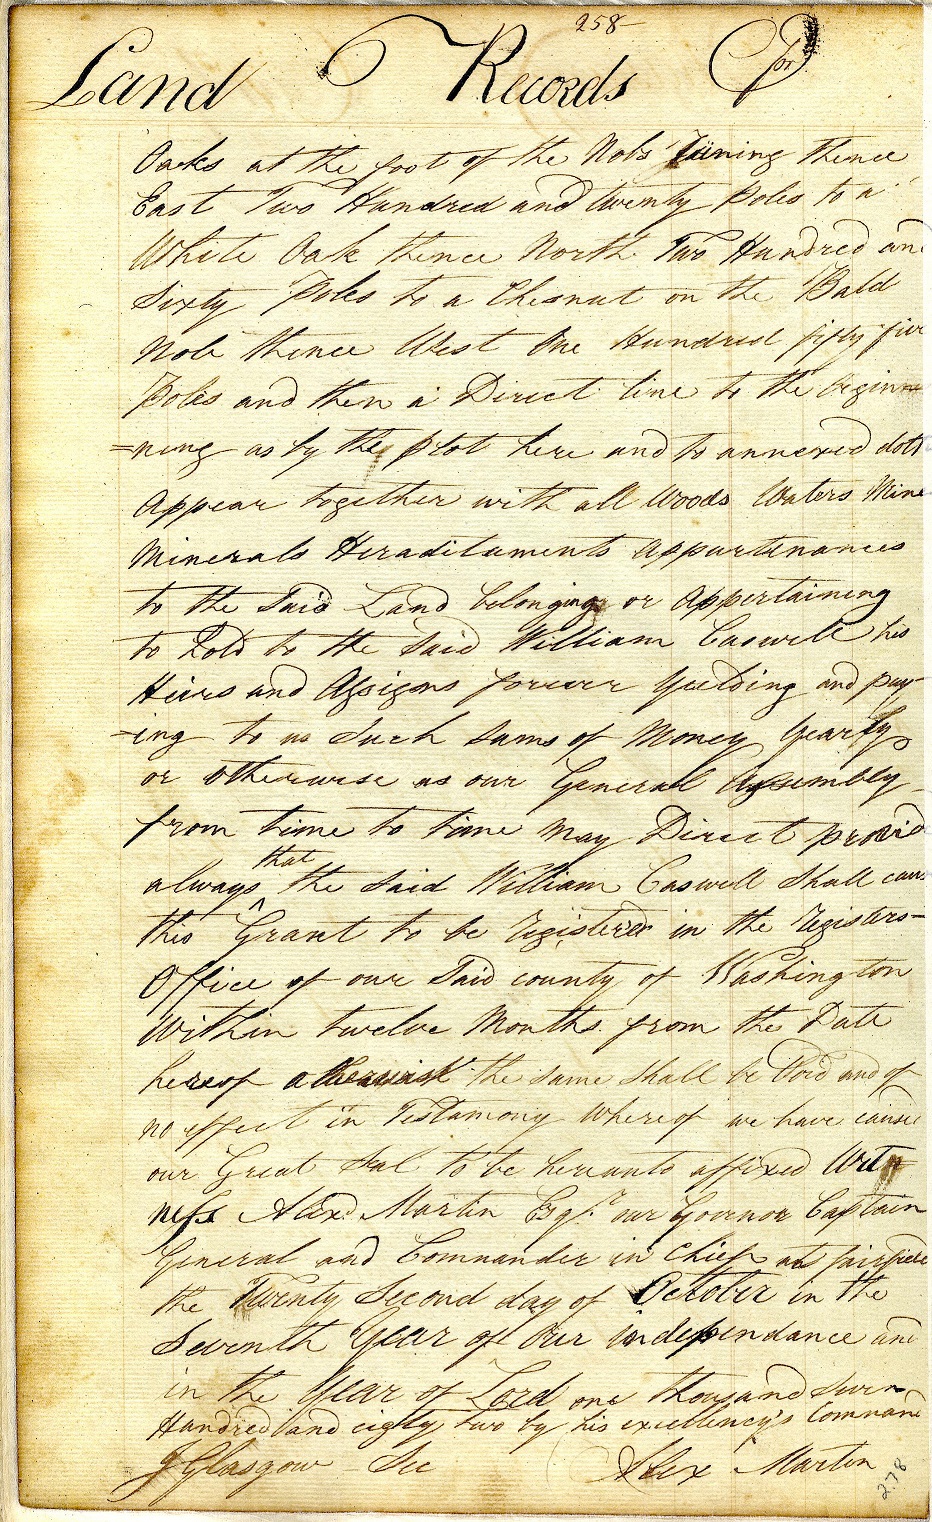 258
Land Records for
Oaks at the foot of the Nobs Juning thence
East Two Hundred and twenty Poles to a
White Oak thence North Two Hundred an
Sixty Poles to a Chesnut on the Bald
Nob thence West One Hundred fifty five
Poles and then a Direct line to the begin
=ning as by the plot here and to annexed doth
Appear together with all Woods Waters Mine
Minerals Heraditaments Appurtenances
to the Said Land belonging or Appertaining
to Hold to the Said William Caswell his
Heirs and Assigns forever Yielding and pay-
-ing to us Such sums of Money Yearly
or otherwise as our General Assembly
from time to time May Direct provid
always that the said William Caswell Shall caus
this Grant to be Registered in the Registers
Office of our Said county of Washington
Within twelve Months from the Date
hereof otherwise the same shall be Void and of
no effect in Testamony Whereof we have cause
our Great Seal to be hereunto affixed Witn
ness Alexd. Martin Esqr. our Govrnor Captain
General and Commander in Chief at fairfield
the Twenty Second day of October in the
Seventh Year of Our independance and
in the Year of Lord one thousand Seven
Hundred and eighty two by his excellency's Command
J Glasgow Sec Alex Martin
278